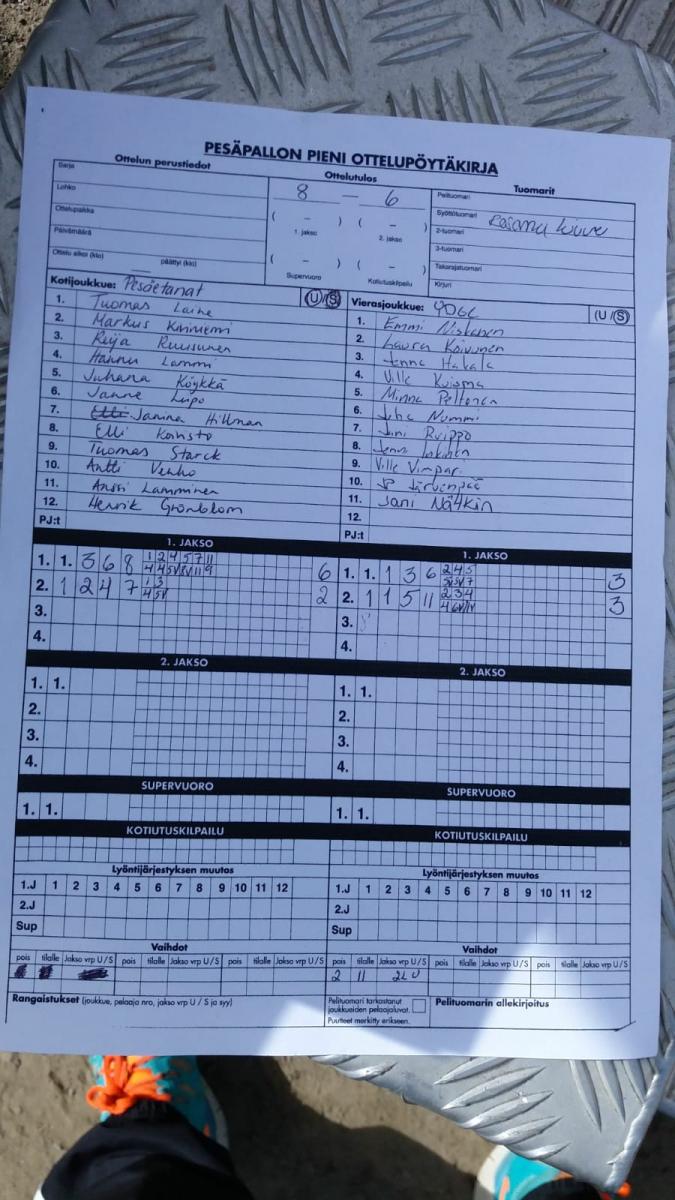 PESÄPALLON PIENI OTTELUPÖYTÄKIRJA
Ottelun perustiedot
Ottelutulos
Tuomarit
Sarja
Lohko
Ottelupaikka
Päivämäärä
Ottelu alkoi (klo) päättyi (klo)
8 – 6
( – ) ( – )
1. jakso 2. jakso
( – ) ( – )
Supervuoro Kotiutuskilpailu
Pelituomari
Syöttötuomari
2-tuomari
3-tuomari
Takarajatuomari
Kirjuri
Kotijoukkue: Pesäetanat (U/S)
1. Tuomas Laine
2. Markus
3. Reija Ruusunen
4. Hannu Lammi
5. Juhana Köykkä
6. Janne Lupo
7. Elli Janina Hillman
8. Elli Koristo
9. Tuomas Starck
10. Antti Venho
11. Anssi Lamminen
12. Henrik Grönblom
PJ:t
Vierasjoukkue: (U/S)
1. Emmi Niskanen
2. Laura Koivunen
3. Jenna Hakala
4. Ville Kuisma
5. Minna Peltonen
6. Juha Nummi
7. Jani Ruippo
8. Jenni
9. Ville Vimpari
10. JP Järvenpää
11. Jani Nätkin
12.
PJ:t
1. JAKSO
1. 1. 3 6 8 1 2 4 5 7 11 6
2. 1 2 4 7 1 3 2
3.
4.
1. JAKSO
1. 1. 1 3 6 2 4 5 3
2. 1 1 5 11 2 3 4 3
3.
4.
2. JAKSO
1. 1.
2.
3.
4.
2. JAKSO
1. 1.
2.
3.
4.
SUPERVUORO
1. 1.
SUPERVUORO
1. 1.
KOTIUTUSKILPAILU
KOTIUTUSKILPAILU
Lyöntijärjestyksen muutos
1.J 1 2 3 4 5 6 7 8 9 10 11 12
2.J
Sup
Lyöntijärjestyksen muutos
1.J 1 2 3 4 5 6 7 8 9 10 11 12
2.J
Sup
Vaihdot
pois tilalle Jakso vrp U/S pois tilalle Jakso vrp U/S pois tilalle Jakso vrp U/S
Vaihdot
pois tilalle Jakso vrp U/S pois tilalle Jakso vrp U/S pois tilalle Jakso vrp U/S
2 11 2L U
Rangaistukset (joukkue, pelaaja nro, jakso vrp U / S ja syy)
Pelituomari tarkastanut
joukkueiden pelaajaluvat.
Puutteet merkitty erikseen.
Pelituomarin allekirjoitus